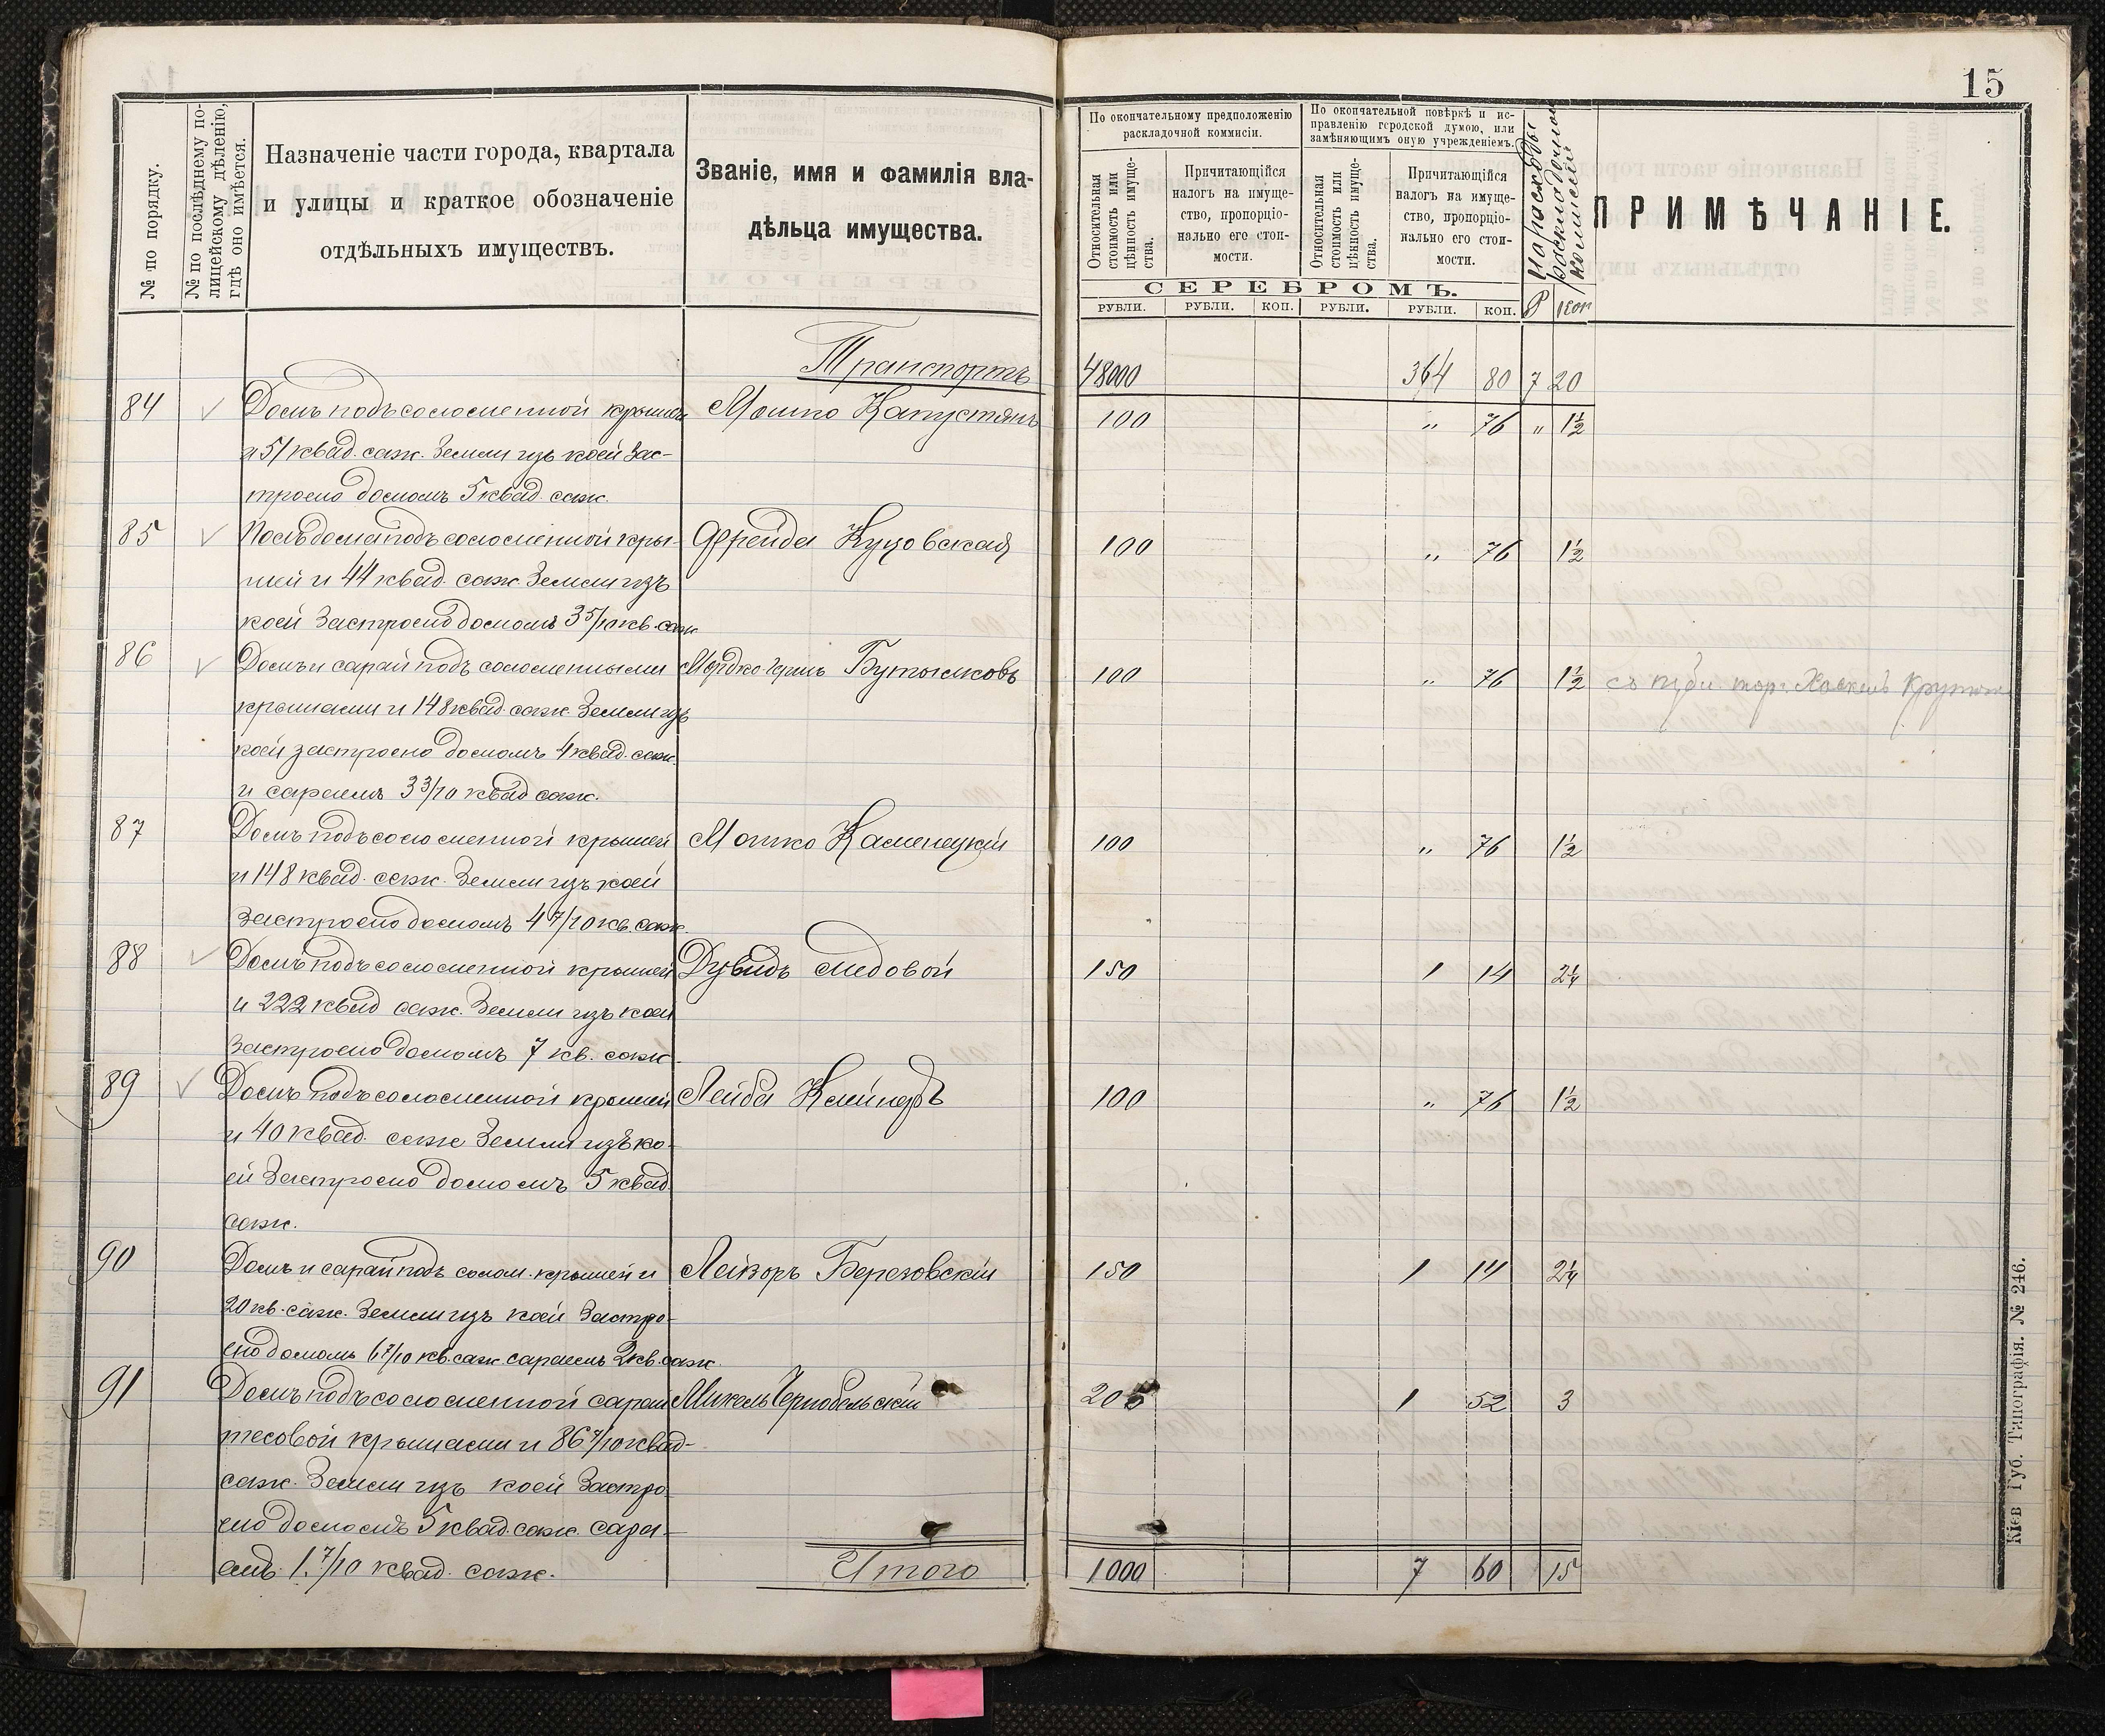 15
№ по порядку.
№ по послѣднему по-
лицейскому дѣленію,
гдѣ оно имѣется.
Назначеніе части города, квартала
и улицы и краткое обозначеніе
отдѣльныхъ имуществъ.
Званіе, имя и фамилія вла-
дѣльца имущества.
По окончательному предположенію
раскладочной коммисіи.
По окончательной повѣркѣ и ис-
правленію городской думою, или
замѣняющимъ оную учрежденіемъ.
Относительная
стоимость или
цѣнность имуще-
ства.
Причитающійся
налогъ на имуще-
ство, пропорціо-
нально его стои-
мости.
Относительная
стоимость или
цѣнность имуще-
ства.
Причитающійся
налогъ на имуще-
ство, пропорціо-
нально его стои-
мости.
На расходы
раскладочной
комисіи
ПРИМѢЧАНІЕ.
СЕРЕБРОМЪ.
РУБЛИ. РУБЛИ. КОП. РУБЛИ. РУБЛИ. КОП. Р Коп
Транспортъ 48000 364 80 7 20
84 Домъ подъ соломенной крышей Мошко Капустянъ 100 " 76 " 1½
и 51 квад. саж. Земли изъ коей Зас-
троено домомъ 5 квад. саж.
85 Полъ дома подъ соломенной кры- Фрейда Куцовская 100 " 76 1½
шей и 44 квад. саж. Земли изъ
коей Застроено домомъ 3 5/10 кв. саж
86 Домъ и сарай подъ соломенными Мордко Бутылковъ 100 " 76 1½ съ публ. торг. Крутая
крышами и 148 квад. саж. Земли изъ
коей застроено домомъ 4 квад. саж.
и сараемъ 3 3/10 квад саж.
87 Домъ подъ соломенной крышей Мошко Каменецкій 100 " 76 1½
и 148 квад. саж. Земли изъ коей
Застроено домомъ 4 7/10 кв. саж.
88 Домъ подъ соломенной крышей Дувидъ Медовой 150 1 14 2¼
и 222 квад саж. Земли изъ коей
Застроено домомъ 7 кв. саж.
89 Домъ подъ соломенной крышей Лейба 100 " 76 1½
и 40 квад. саж Земли изъ ко-
ей Застроено домомъ 5 квад
саж.
90 Домъ и сарай подъ солом. крышей и Лейзоръ Березовскій 150 1 14 2¼
20 кв. саж. Земли изъ коей Застро-
ено домомъ 6 7/10 кв. саж. сараемъ 2 кв. саж.
91 Домъ подъ соломенной сарай Михель Чернобельскій 200 1 52 3
тесовой крышами и 86 7/10 квад-
саж. Земли изъ коей Застро-
ено домомъ 5 квад. саж. сара-
емъ 1 7/10 квад. саж.
Итого 1000 7 60 15
Кіев Губ. Типографія. № 246.